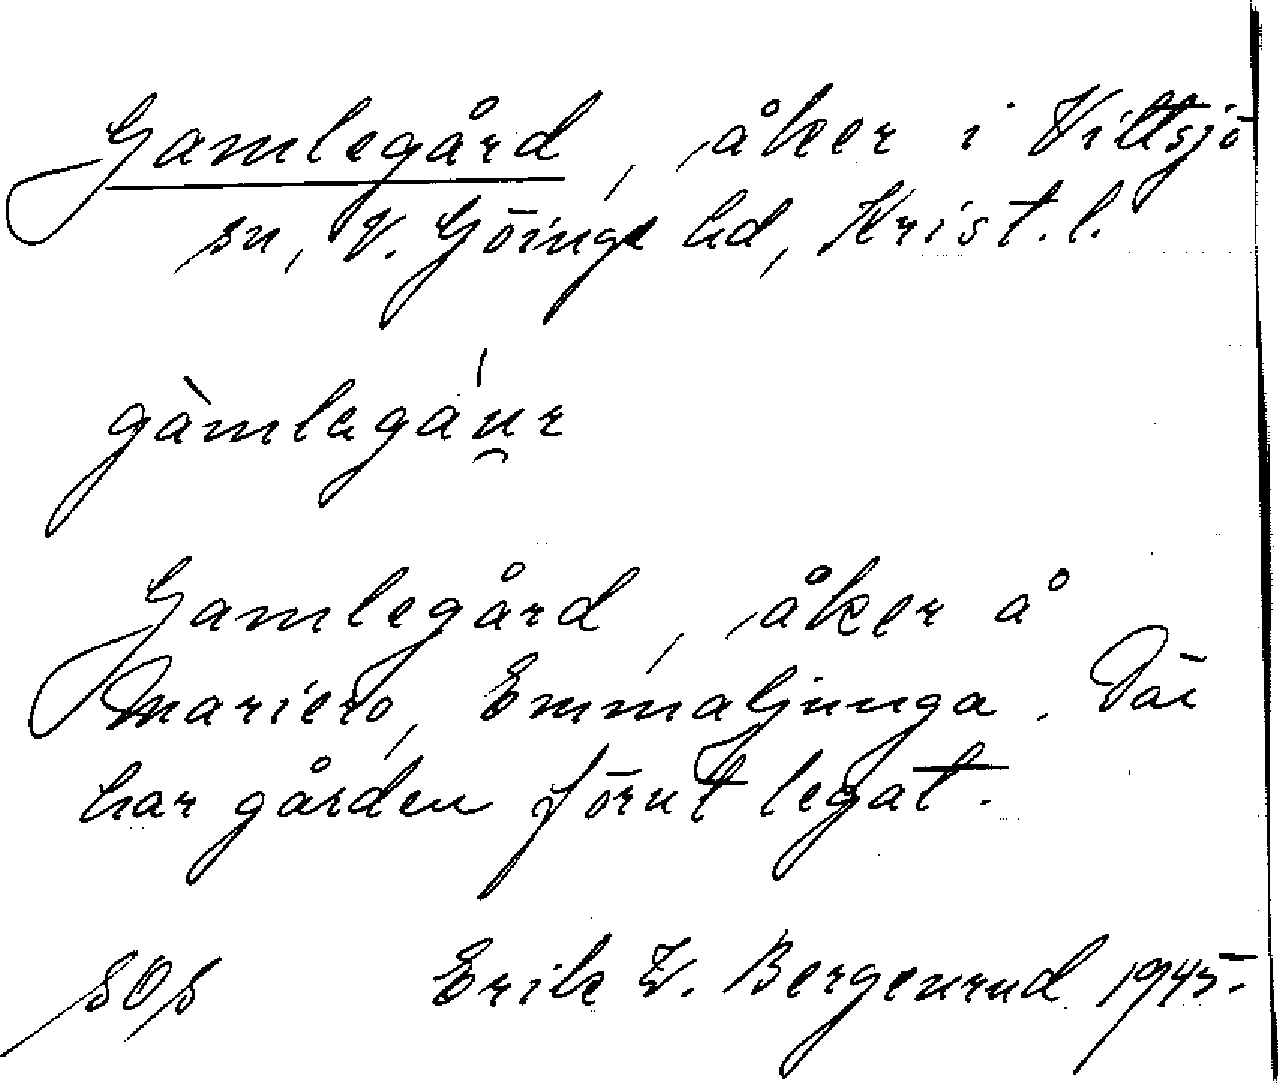 Gamlegård, åker i Vittsjö
sn, V. Göinge hd, Krist. l.
gàmlagáu̯r
Gamlegård, åker å
Mariero, Emmaljunga. Där
har gården förut legat.
SOS Erik W. Bergenrud 1945.